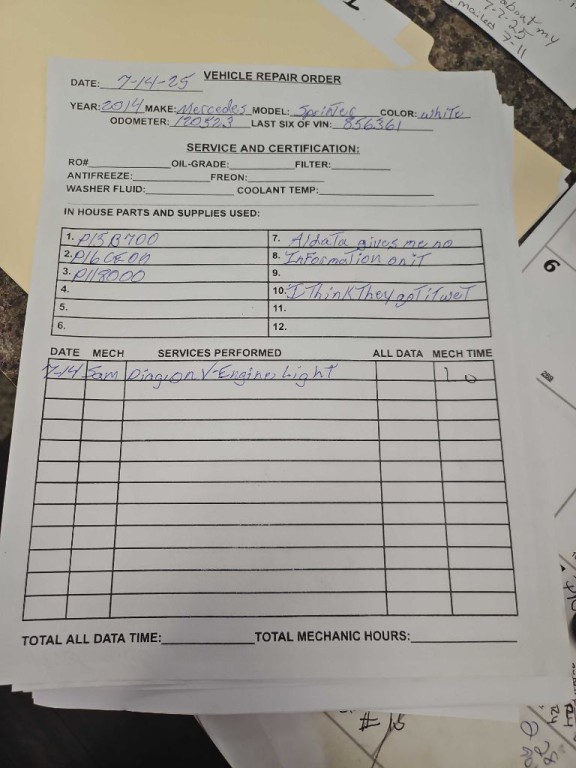 about my
7-7-25
mailed 7-11
VEHICLE REPAIR ORDER
DATE: 7-14-25
YEAR: 2014 MAKE: Mercedes MODEL: Sprinter COLOR: white
ODOMETER: 120523 LAST SIX OF VIN: 856361
SERVICE AND CERTIFICATION:
RO# OIL-GRADE: FILTER:
ANTIFREEZE: FREON:
WASHER FLUID: COOLANT TEMP:
IN HOUSE PARTS AND SUPPLIES USED:
1. P15B700 7. Aldata gives me no
2. 8. Information on iT
3. P118000 9.
4. 10. I Think They got it wet
5. 11.
6. 12.
DATE MECH SERVICES PERFORMED ALL DATA MECH TIME
7-14 Sam V-Engine Light 1.0
TOTAL ALL DATA TIME: TOTAL MECHANIC HOURS:
6
# 15